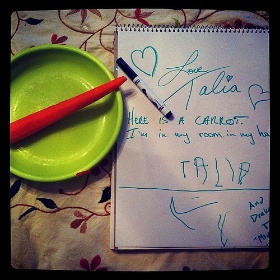 Love
Talia
HERE IS A CARROT.
I'm in my room in my ha
TALIA
And